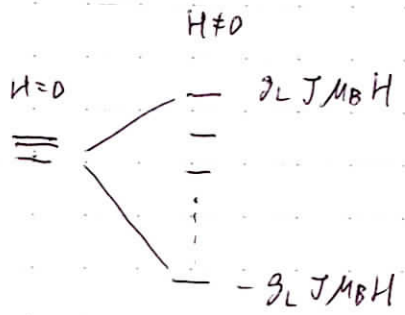 H≠0
H=0
g_L J μ_B H
- g_L J μ_B H